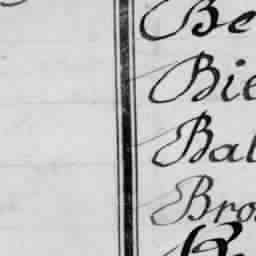 Be
Bie
Bal
Bro